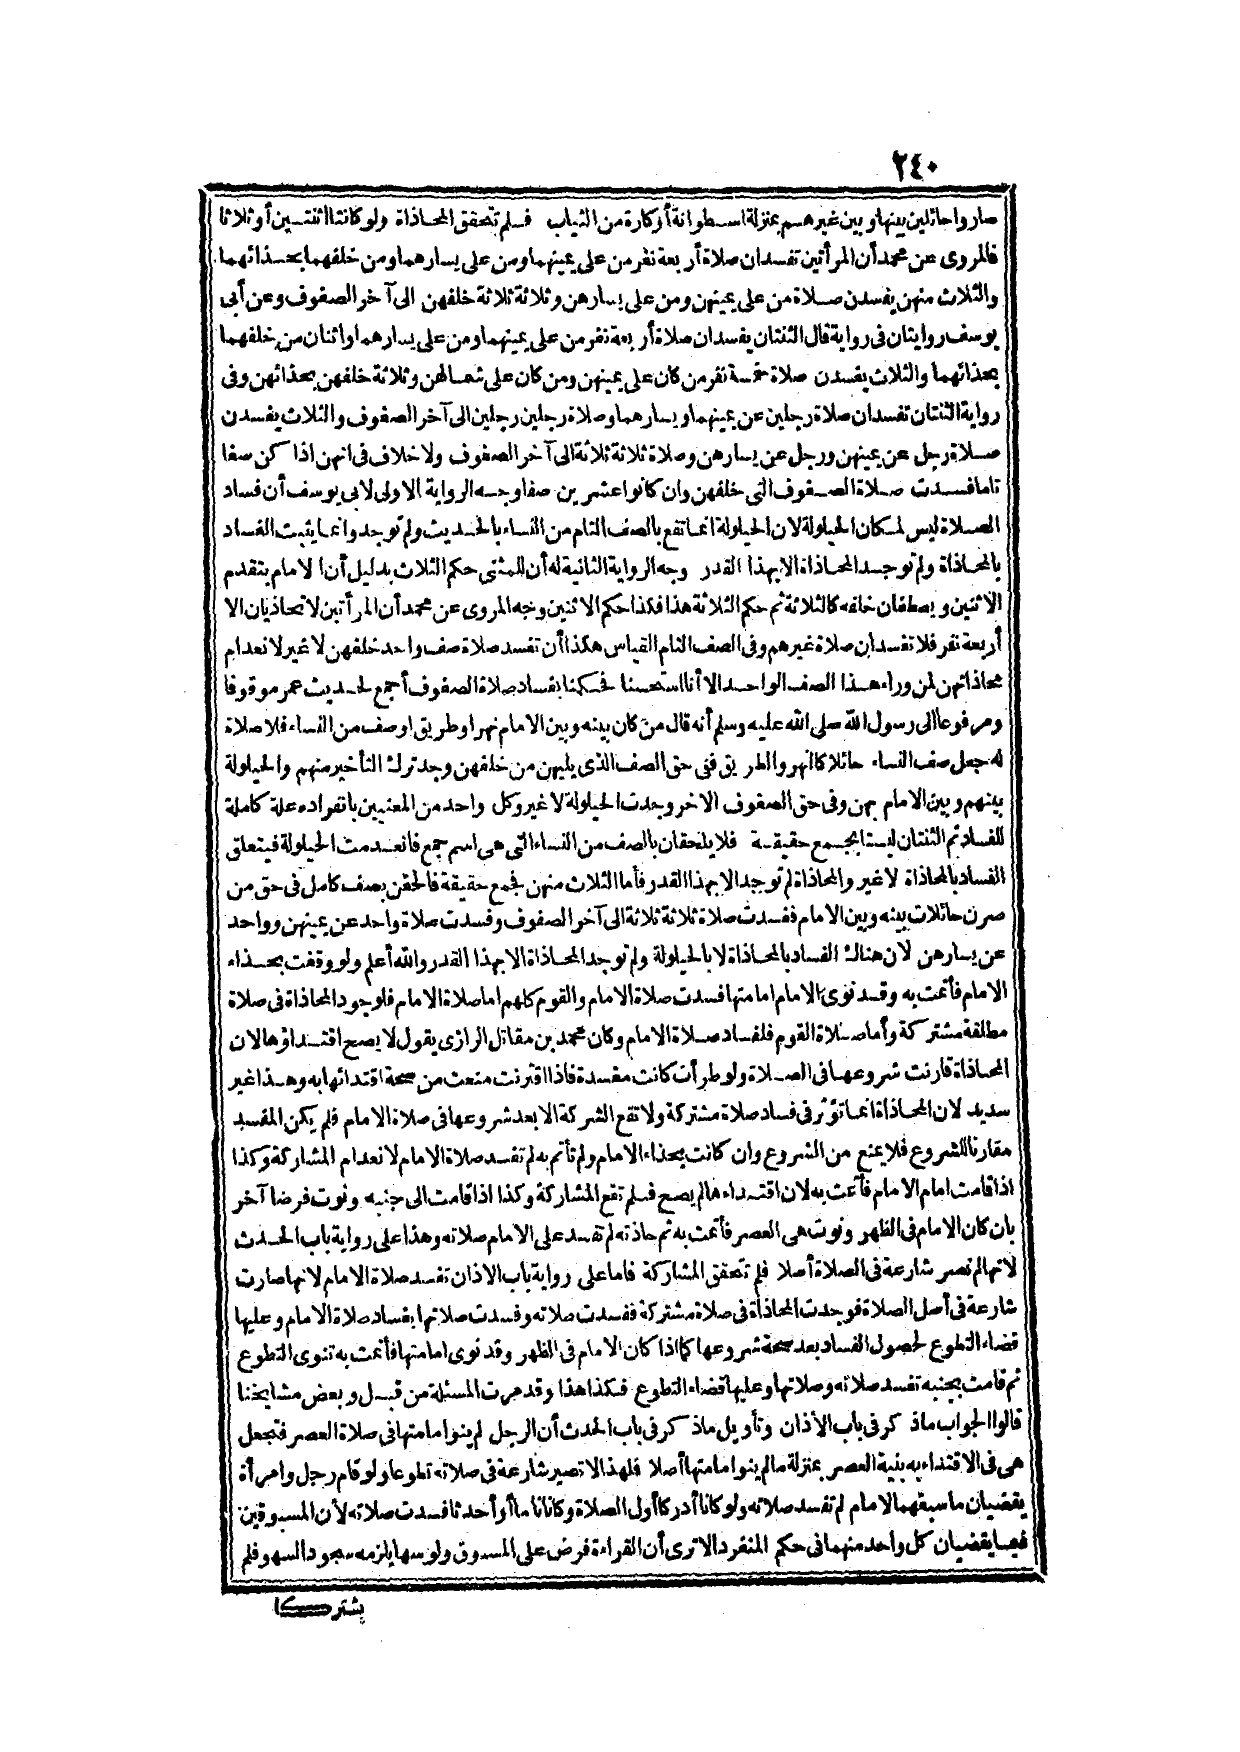 ٢٤٠
صاروا حائلين بينها وبين غيرهم بمنزلة اسطوانة أو كارة من الثياب فلم تتحقق المحاذاة ولو كانتا اثنتين أو ثلاثا
فالمروى عن محمد أن المرأتين تفسدان صلاة أربعة نفر من على يمينهما ومن على يسارهما ومن خلفهما بحذائهما
والثلاث منهن يفسدن صلاة من على يمينهن ومن على يسارهن وثلاثة ثلاثة خلفهن الى آخر الصفوف وعن أبى
يوسف روايتان فى رواية قال الثنتان يفسدان صلاة أربعة نفر من على يمينهما ومن على يسارهما واثنان من خلفهما
بحذائهما والثلاث يفسدن صلاة خمسة نفر من كان على يمينهن ومن كان على شمالهن وثلاثة خلفهن بحذائهن وفى
رواية الثنتان تفسدان صلاة رجلين عن يمينهما ويسارهما وصلاة رجلين رجلين الى آخر الصفوف والثلاث يفسدن
صلاة رجل عن يمينهن ورجل عن يسارهن وصلاة ثلاثة ثلاثة الى آخر الصفوف ولا خلاف فى انهن اذا كن صفا
تاما فسدت صلاة الصفوف التى خلفهن وان كانوا عشرين صفا وجه الرواية الاولى لابى يوسف أن فساد
الصلاة ليس لمكان الحيلولة لان الحيلولة انما تقع بالصف التام من النساء بالحديث ولم توجد وانما يثبت الفساد
بالمحاذاة ولم توجد المحاذاة الا بهذا القدر وجه الرواية الثانية له أن للمثنى حكم الثلاث بدليل أن الامام يتقدم
الاثنين ويصطفان خلفه كالثلاثة ثم حكم الثلاثة هذا فكذا حكم الاثنين وجه المروى عن محمد أن المرأتين لا تحاذيان الا
أربعة نفر فلا تفسدان صلاة غيرهم وفى الصف التام القياس هكذا أن تفسد صلاة صف واحد خلفهن لا غير لانعدام
محاذاتهن لمن وراء هذا الصف الواحد الا أنا استحسنا فحكمنا بفساد صلاة الصفوف أجمع لحديث عمر موقوفا
ومرفوعا الى رسول الله صلى الله عليه وسلم أنه قال من كان بينه وبين الامام نهر او طريق او صف من النساء فلا صلاة
له جعل صف النساء حائلا كالنهر والطريق ففى حق الصف الذى يليهن من خلفهن وجد ترك التأخير منهم والحيلولة
بينهم وبين الامام بهن وفى حق الصفوف الاخر وجدت الحيلولة لا غير وكل واحد من المعنيين بانفراده علة كاملة
للفساد ثم الثنتان ليستا بجمع حقيقة فلا يلحقان بالصف من النساء التى هى اسم جمع فانعدمت الحيلولة فيتعلق
الفساد بالمحاذاة لا غير والمحاذاة لم توجد الا بهذا القدر فأما الثلاث منهن فجمع حقيقة فالحقن بصف كامل فى حق من
صرن حائلات بينه وبين الامام ففسدت صلاة ثلاثة ثلاثة الى آخر الصفوف وفسدت صلاة واحد عن يمينهن وواحد
عن يسارهن لان هناك الفساد بالمحاذاة لا بالحيلولة ولم توجد المحاذاة الا بهذا القدر والله أعلم ولو وقفت بحذاء
الامام فأتمت به وقد نوى الامام امامتها فسدت صلاة الامام والقوم كلهم اما صلاة الامام فلوجود المحاذاة فى صلاة
مطلقة مشتركة وأما صلاة القوم فلفساد صلاة الامام وكان محمد بن مقاتل الرازى يقول لا يصح اقتداؤها لان
المحاذاة قارنت شروعها فى الصلاة ولو طرأت كانت مفسدة فاذا اقترنت منعت من صحة اقتدائها به وهذا غير
سديد لان المحاذاة انما تؤثر فى فساد صلاة مشتركة ولا تقع الشركة الا بعد شروعها فى صلاة الامام فلم يكن المفسد
مقارنا للشروع فلا يمنع من الشروع وان كانت بحذاء الامام ولم تأتم به لم تفسد صلاة الامام لانعدام المشاركة وكذا
اذا قامت امام الامام فأتمت به لان اقتداءها لم يصح فلم تقع المشاركة وكذا اذا قامت الى جنبه ونوت فرضا آخر
بان كان الامام فى الظهر ونوت هى العصر فأتمت به ثم حاذته لم تفسد على الامام صلاته وهذا على رواية باب الحدث
لانها لم تصر شارعة فى الصلاة أصلا فلم تتحقق المشاركة فاما على رواية باب الاذان تفسد صلاة الامام لانها صارت
شارعة فى أصل الصلاة فوجدت المحاذاة فى صلاة مشتركة ففسدت صلاته وفسدت صلاتها بفساد صلاة الامام وعليها
قضاء التطوع لحصول الفساد بعد صحة شروعها كما اذا كان الامام فى الظهر وقد نوى امامتها فأتمت به تنوى التطوع
ثم قامت بجنبه تفسد صلاته وصلاتها وعليها قضاء التطوع فكذا هذا وقد مرت المسئلة من قبل وبعض مشايخنا
قالوا الجواب ماذكر فى باب الأذان وتأويل ماذكر فى باب الحدث أن الرجل لم ينو امامتها فى صلاة العصر فتجعل
هى فى الاقتداء به بنية العصر بمنزلة ما لم ينو امامتها أصلا فلهذا لا تصير شارعة فى صلاته تطوعا ولو قام رجل وامرأة
يقضيان ما سبقهما الامام لم تفسد صلاته ولو كانا أدركا أول الصلاة وكانا ناما أو أحدثا فسدت صلاته لأن المسبوقين
فيما يقضيان كل واحد منهما فى حكم المنفرد الا ترى أن القراءة فرض على المسبوق ولو سها يلزمه سجود السهو فلم
يشتركا